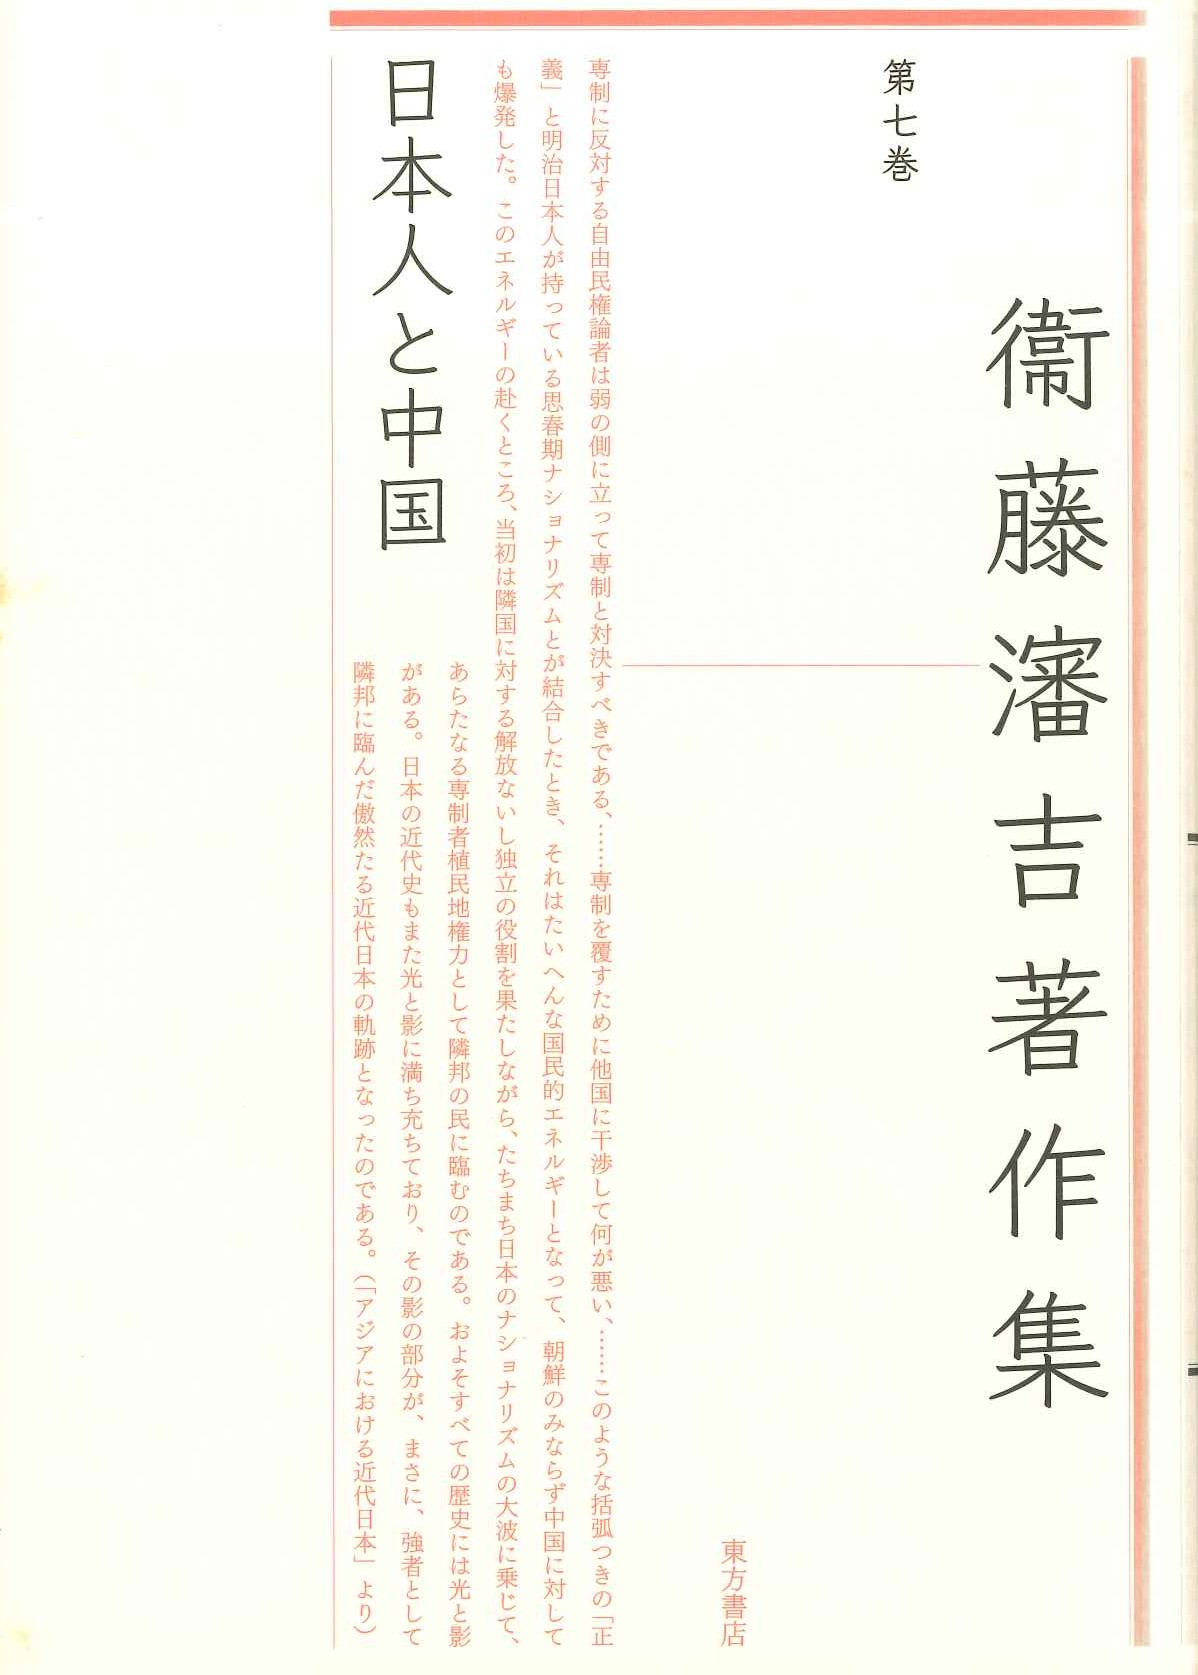 衞藤瀋吉著作集
第七巻
東方書店
専制に反対する自由民権論者は弱の側に立って専制と対決すべきである、……専制を覆すために他国に干渉して何が悪い、……このような括弧つきの「正
義」と明治日本人が持っている思春期ナショナリズムとが結合したとき、それはたいへんな国民的エネルギーとなって、朝鮮のみならず中国に対して
も爆発した。このエネルギーの赴くところ、当初は隣国に対する解放ないし独立の役割を果たしながら、たちまち日本のナショナリズムの大波に乗じて、
あらたなる専制者植民地権力として隣邦の民に臨むのである。およそすべての歴史には光と影
がある。日本の近代史もまた光と影に満ち充ちており、その影の部分が、まさに、強者として
隣邦に臨んだ傲然たる近代日本の軌跡となったのである。（「アジアにおける近代日本」より）
日本人と中国